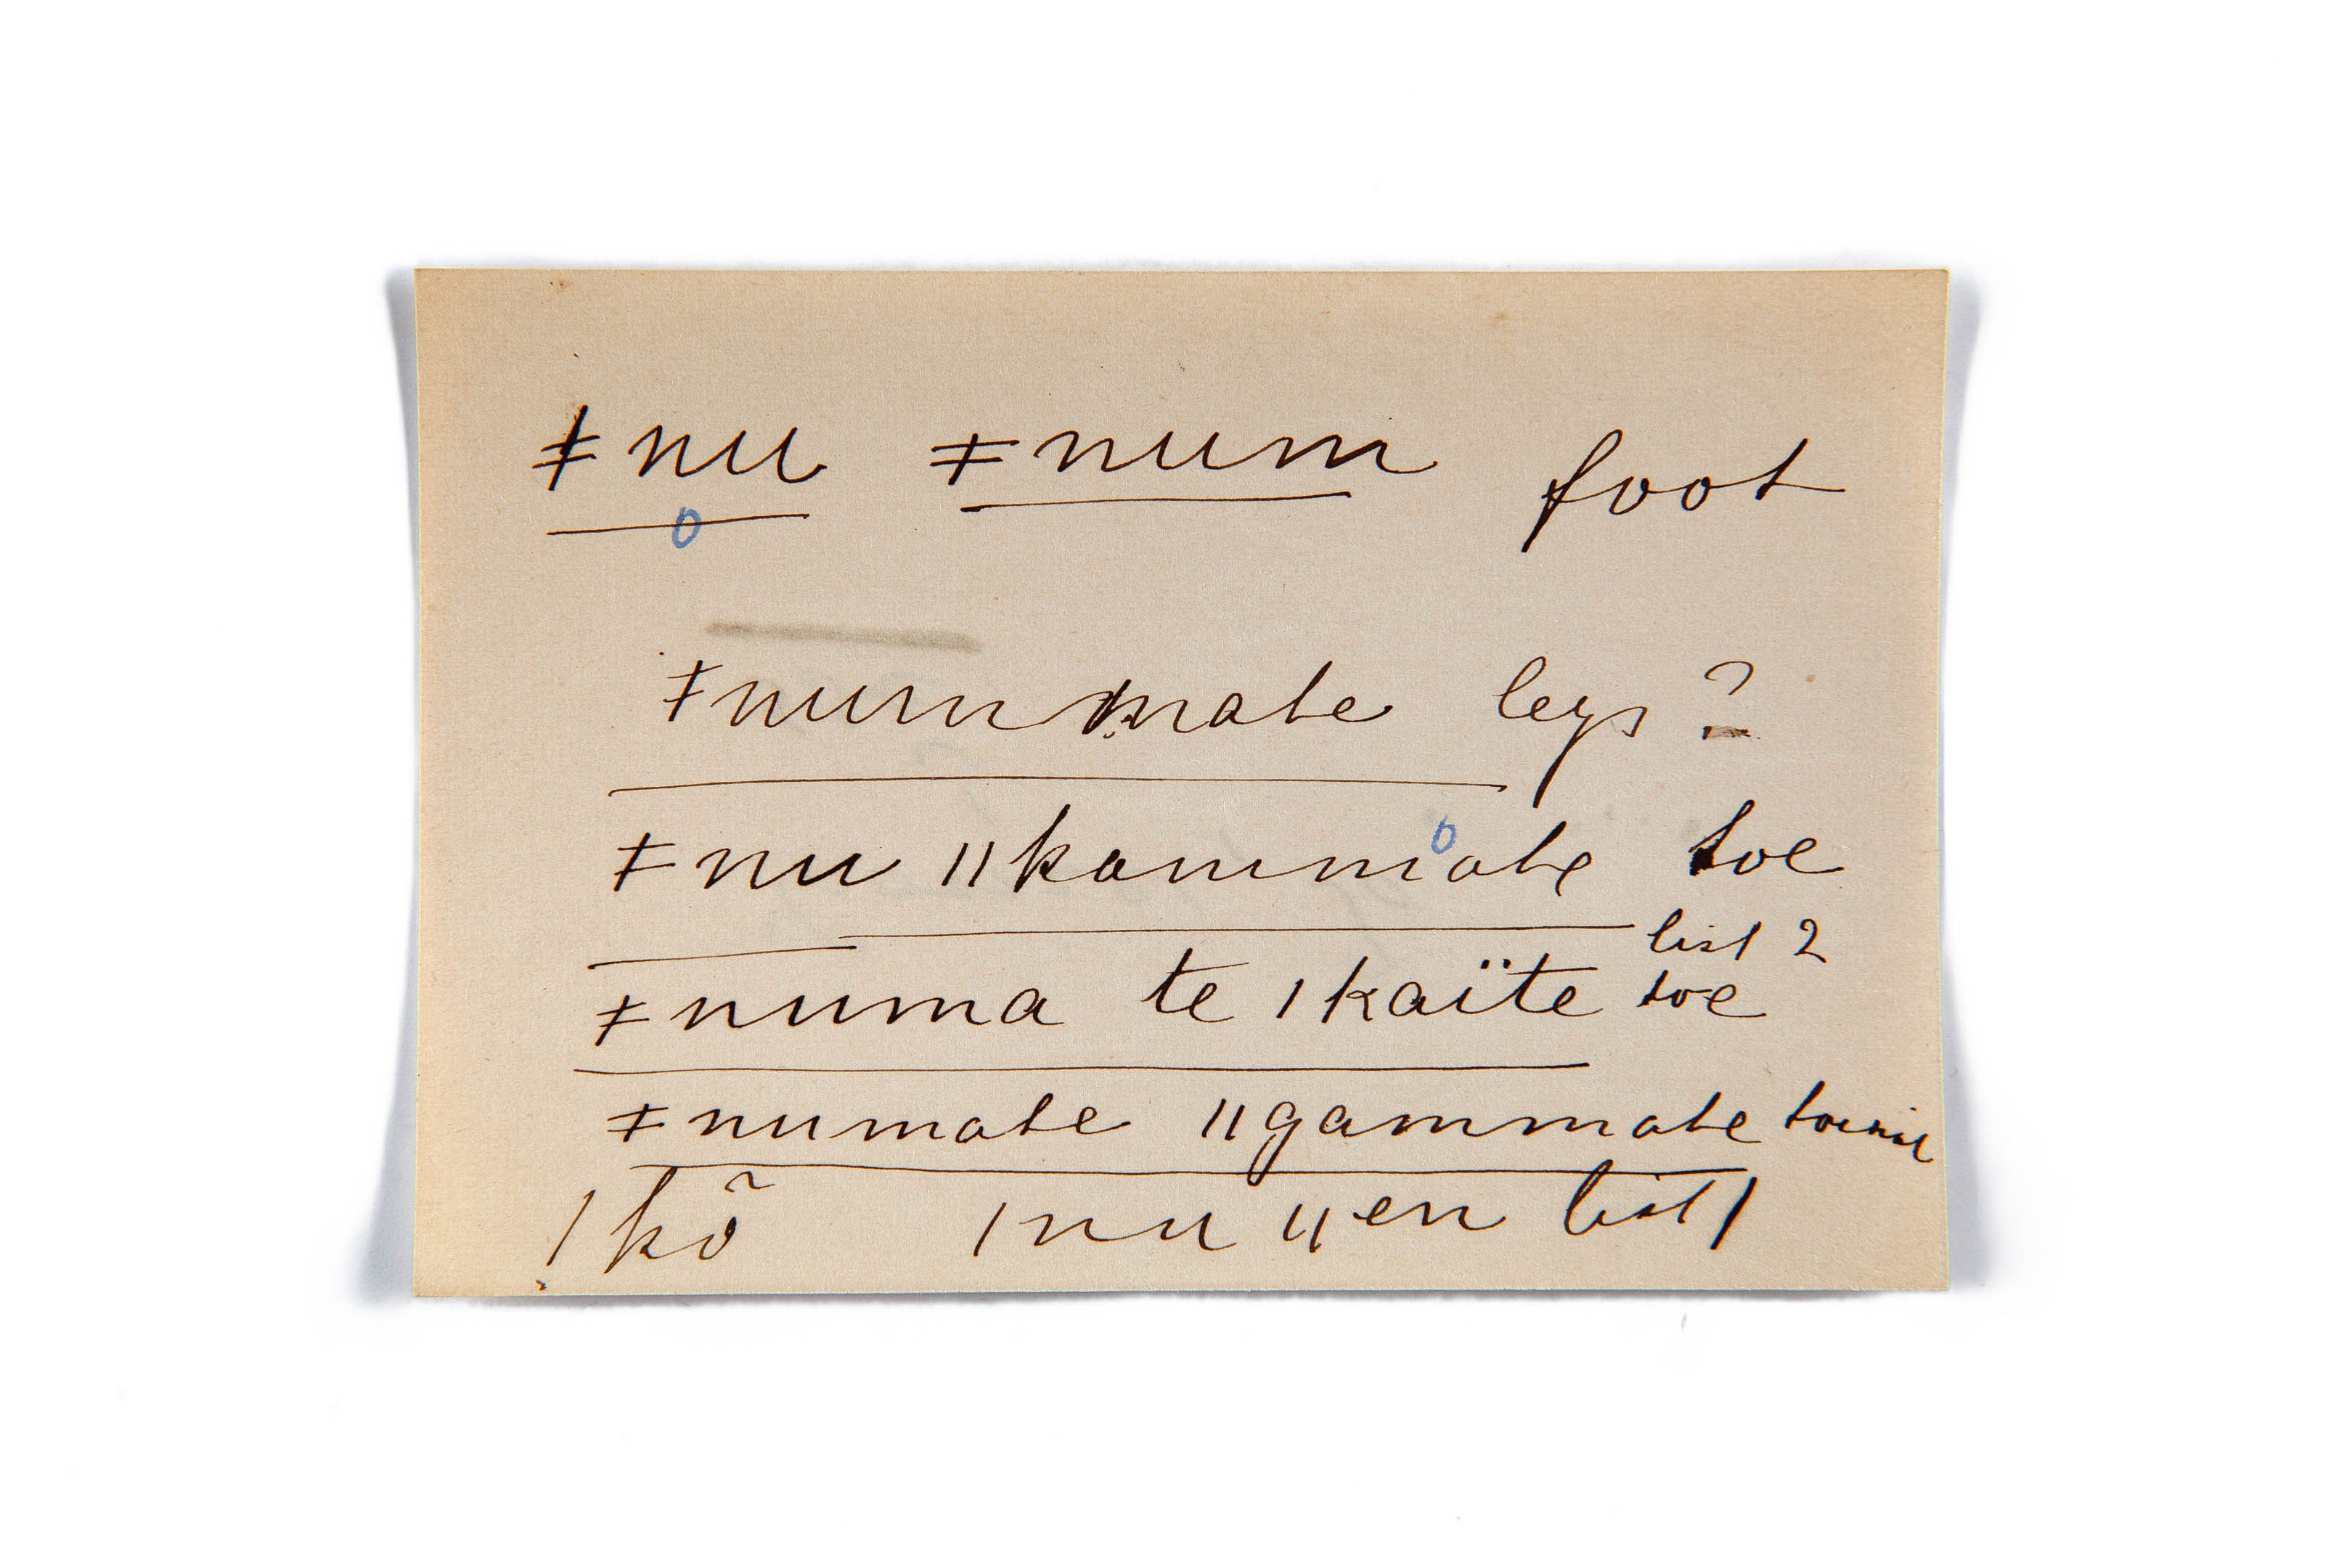 ǂnu ǂnum foot
o
ǂnummate legs?
o
ǂnu ǁkammate toe
list 2
ǂnuma te ǀkaïte toe
ǂnumate ǁgammate
!kõ ǀnu ǁen list 1